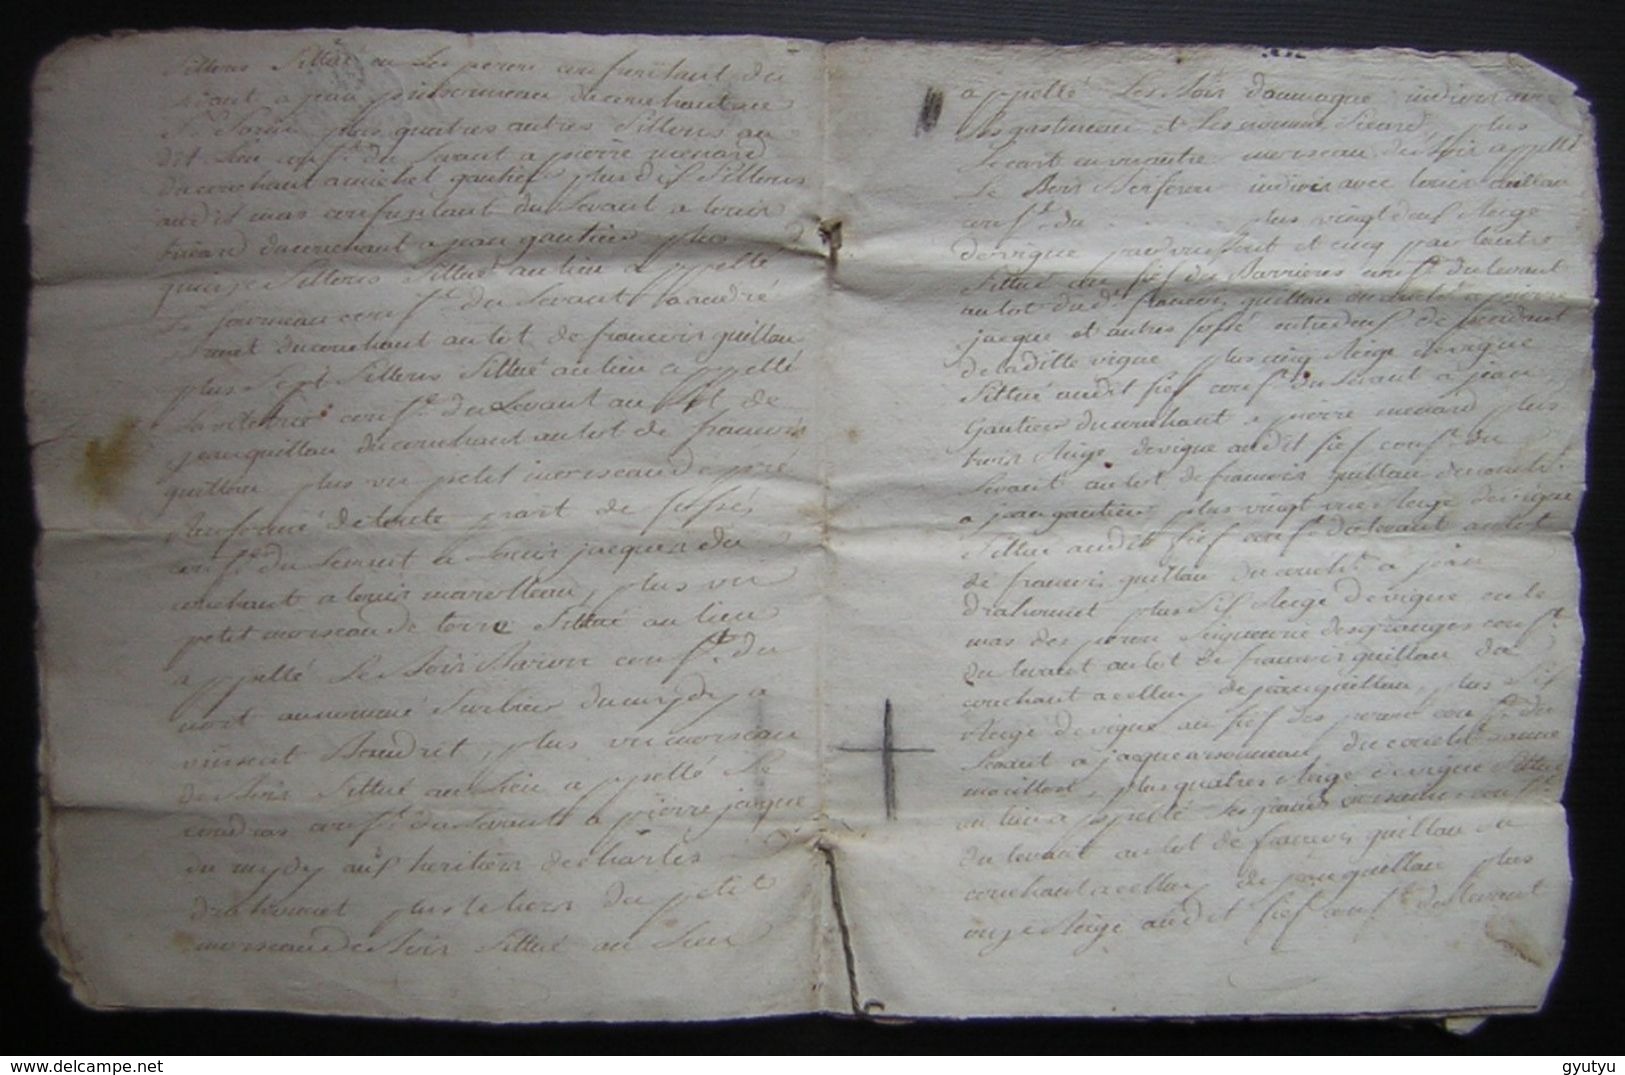 Sillons Sittué au Les peron confrontant du
levant a jean du couchant au
Sr plus quatres autres Sillons au
dit Lieu conft. du Levant a pierre menard
du couchant a michel gautier plus dis Sillons
audit mas confrontant du Levant a louis
du couchant a jean gautier plus
quinze Sillons Sittué au lieu appellé
Le fourneau conft. du Levant a andré
du couchant au lot de francois guillau
plus Sept Sillons Sittué au lieu appellé
conft. du Levant au lot de
jean guillau du couchant au lot de francois
guillau plus un petit morseau de pré
Renfermé de toute part de fossés
conft. du Levant a Louis jacques du
couchant a louis marolleau, plus un
petit morseau de terre Sittué au lieu
appellé Le bois Barion conft. du
nort au nommé du mydy a
vinsent Baudrit, plus un morseau
de Bois Sittué au Lieu appellé Le
coudras conft. du Levant a pierre jacque
du mydy aux heritiers de charles
drahonnet plus le tiers du petit
morseau de Bois Sittué au Lieu
appellé Les bois daumaque indivis avec
Les gastineau et Les nommé Sicard, plus
Le cart en un autre morseau de bois appellé
Le Bois indivis avec louis guillau
conft. du plus vingt deux Reige
de vigne par un bout et cinq par lautre
Sittué au fief des Barrieres conft. du levant
au lot du dt. francois guillau du coucht. a pierre
jacque et autres fossé entredeux de pendent
de la ditte vigne plus cinq Reige de vigne
Sittué audit fief conft. du Levant a jean
Gautier du couchant a pierre menard plus
trois Reige de vigne audit fief conft. du
Levant au lot de francois guillau du coucht.
a jean gautier plus vingt une Reige de vigne
Sittué audit fief conft. du levant au lot
de francois guillau du coucht. a jean
drahonnet plus Six Reige de vigne en le
mas des peron Seigneurie des granges conft.
du levant au lot de francois guillau du
couchant a celluy de jean guillau, plus Six
Reige de vigne au fief des perons conft. du
Levant a jacque arsonneau, du coucht. a anne
mouillot, plus quatres Reige de vigne Sittué
au lieu appellé Les grands morseaux conft.
du levant au lot de francois guillau du
couchant a celluy de jean guillau plus
onze Reige audit fief conft. du levant
gyutyu